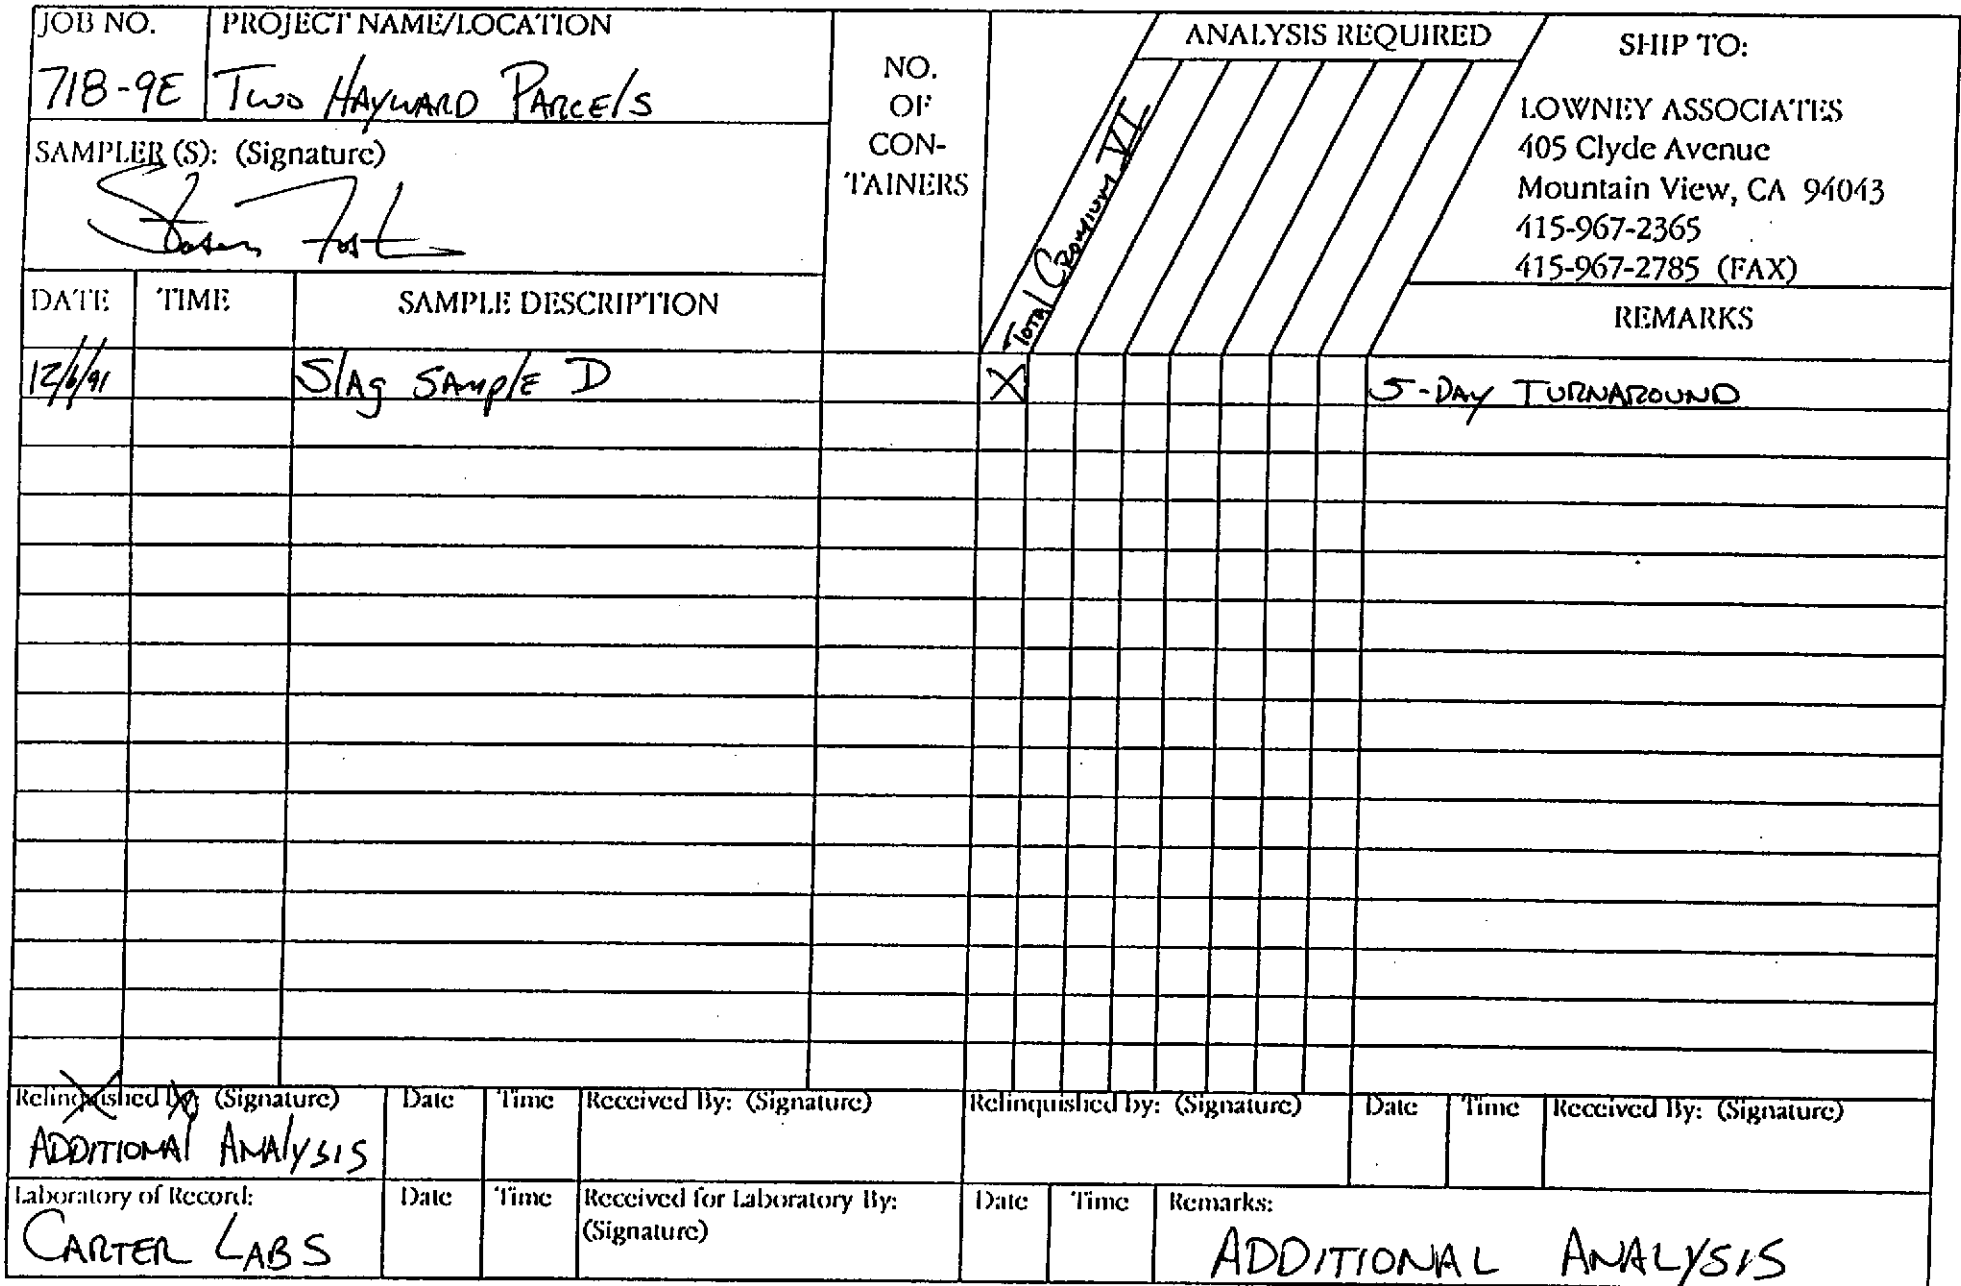 JOB NO.
PROJECT NAME/LOCATION
718-9E
Two HAYWARD PARCElS
SAMPLER (S): (Signature)
NO.
OF
CON-
TAINERS
ANALYSIS REQUIRED
Total Cromium VI
SHIP TO:
LOWNEY ASSOCIATES
405 Clyde Avenue
Mountain View, CA 94043
415-967-2365
415-967-2785 (FAX)
DATE
TIME
SAMPLE DESCRIPTION
REMARKS
12/6/91
SlAg SAmplE D
X
5-DAy TURNAROUND
Relinquished by: (Signature)
Date
Time
Received By: (Signature)
Relinquished by: (Signature)
Date
Time
Received By: (Signature)
ADDITIONAl ANAlySIS
Laboratory of Record:
Date
Time
Received for Laboratory By:
(Signature)
Date
Time
Remarks:
CARTER LABS
ADDITIONAL ANALYSIS